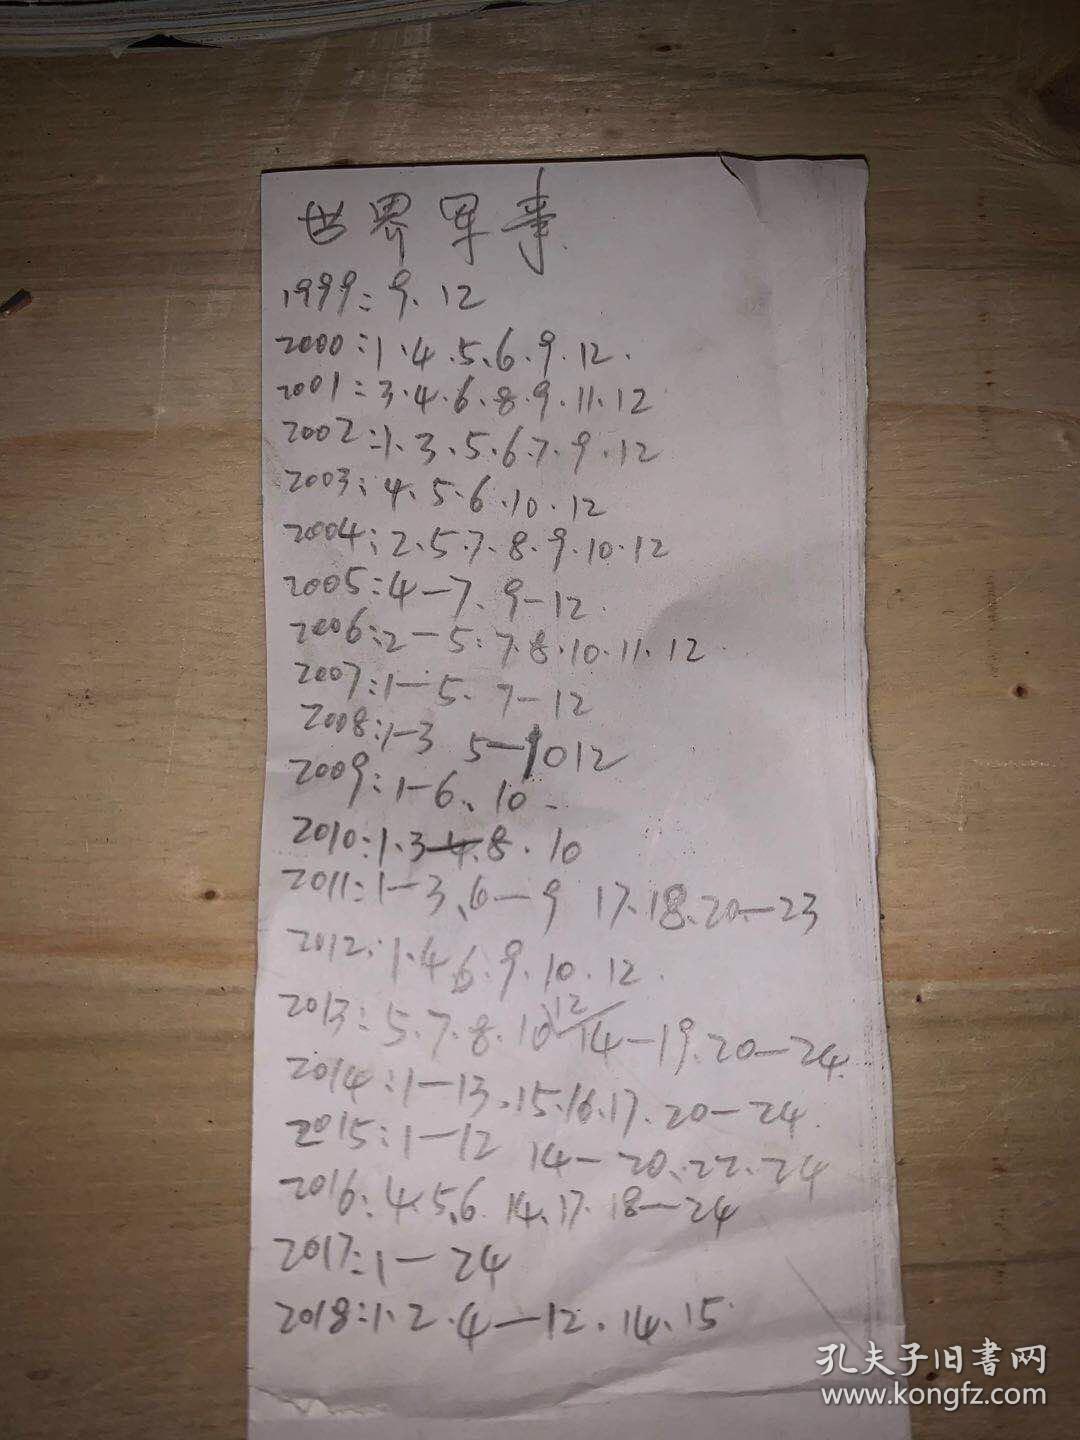 世界军事
1999:9.12
2000:1.4.5.6.9.12.
2001:3.4.6.8.9.11.12
2002:1.3.5.6.7.9.12
2003:4.5.6.10.12
2004:2.5.7.8.9.10.12
2005:4-7.9-12.
2006:2-5.7.8.10.11.12
2007:1-5.7-12
2008:1-3 5-1012
2009:1-6、10.
2010:1.3 4.8.10
2011:1-3、6-9 17.18.20-23
2012:1.4 6.9.10.12.
2013:5.7.8.10、12 14-19.20-24.
2014:1-13.15.16.17.20-24.
2015:1-12 14-20.22.24
2016:4.5.6 14.17.18-24
2017:1-24
2018:1.2.4-12.14.15
孔夫子旧書网
www.kongfz.com